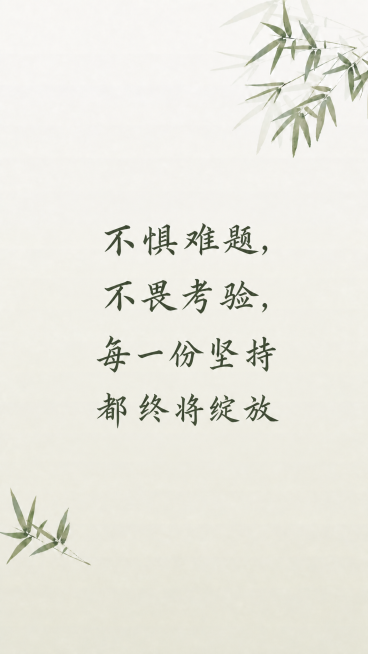 不惧难题,
不畏考验,
每一份坚持
都终将绽放